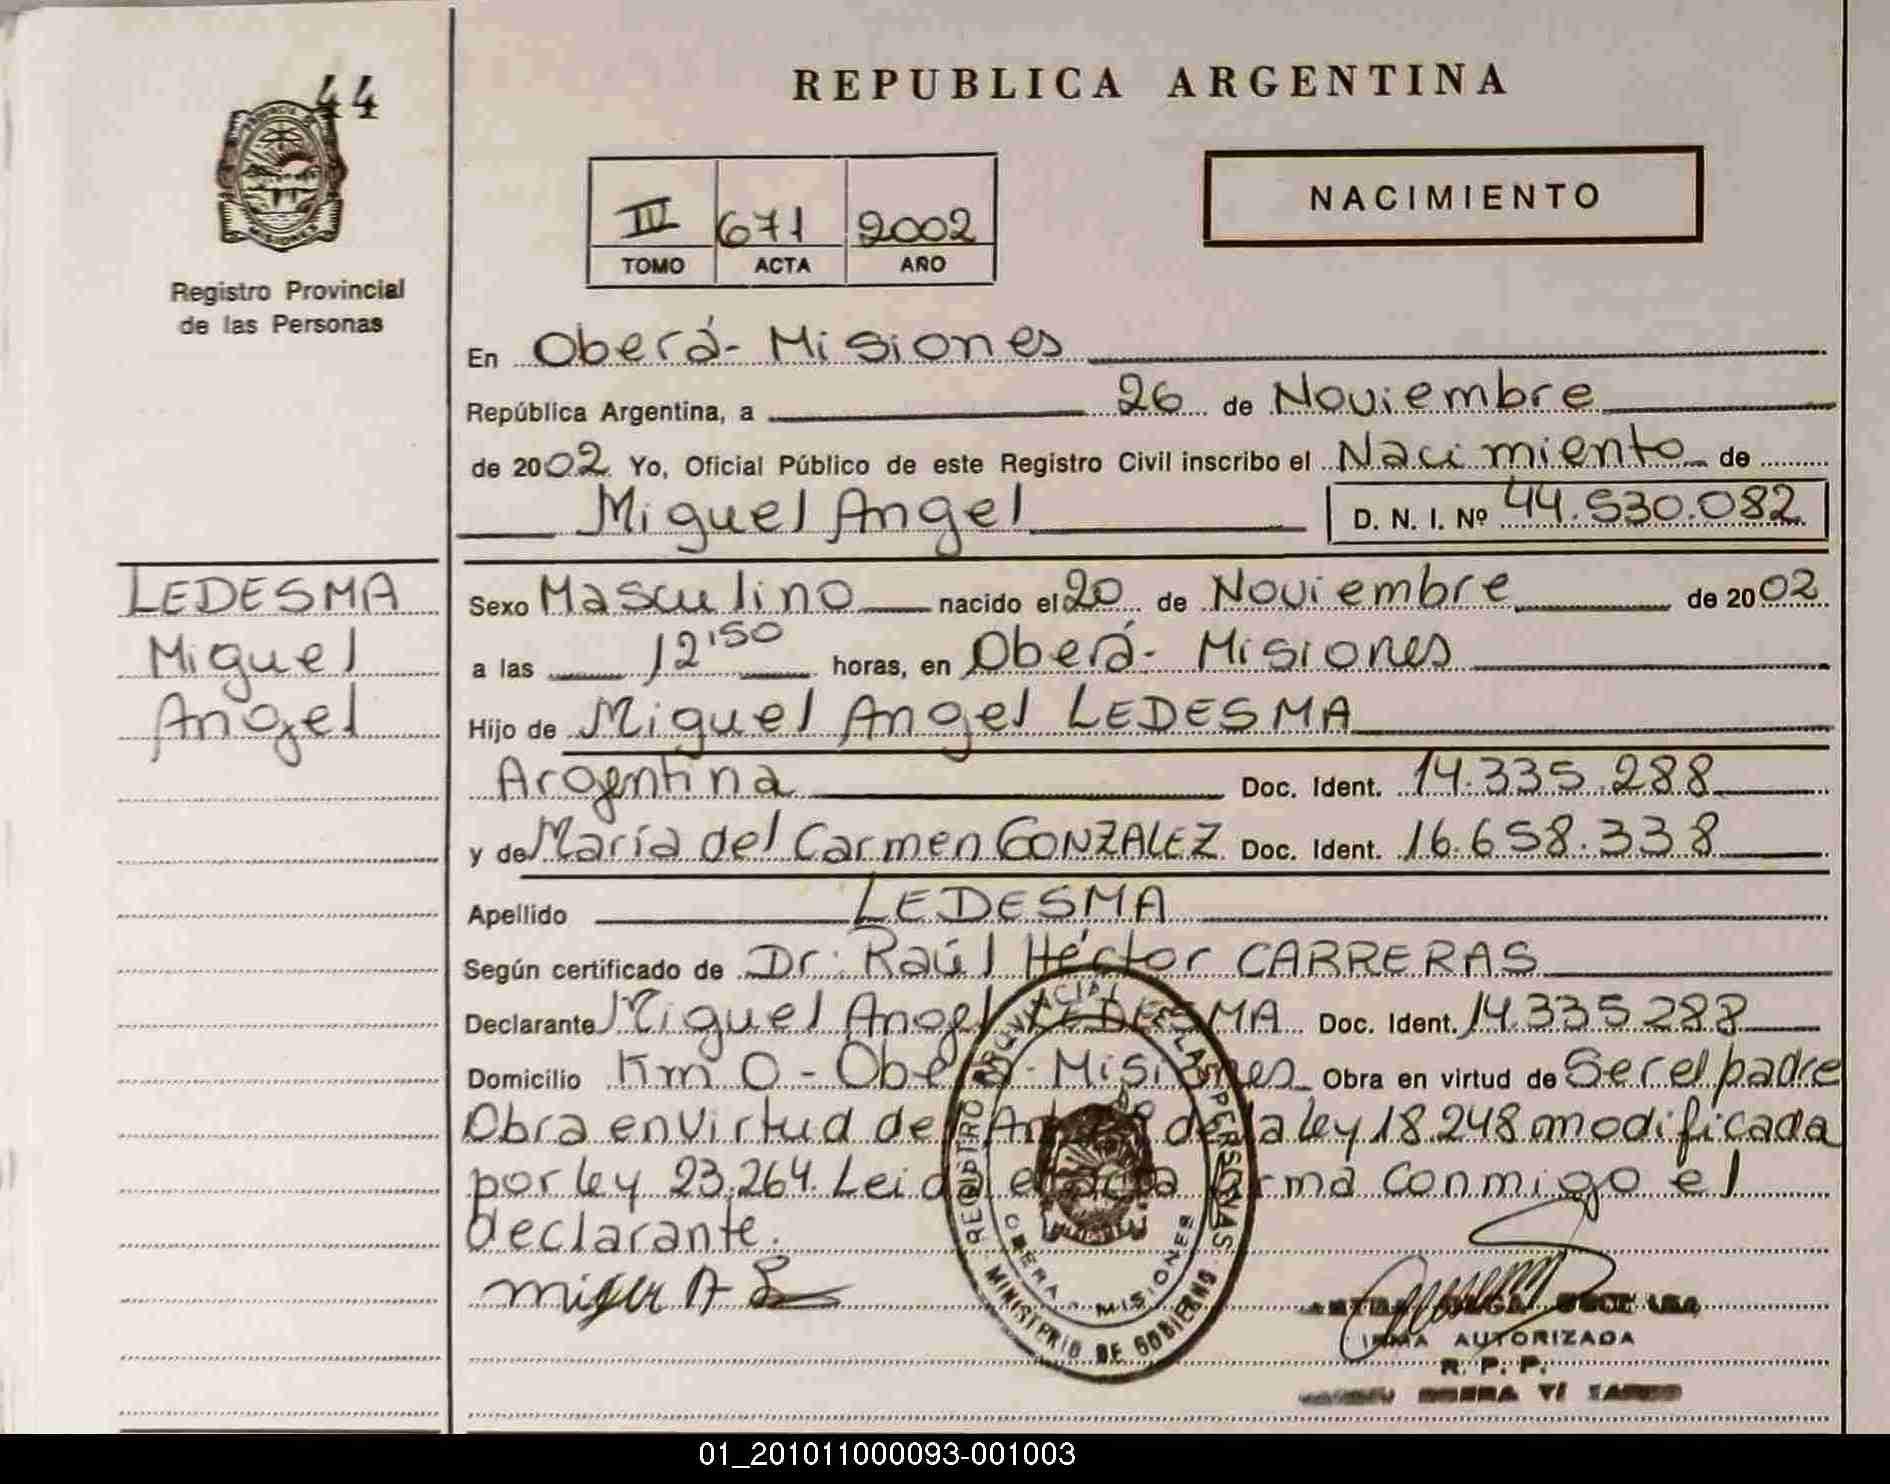 44
PROVINCIA DE
MISIONES
Registro Provincial
de las Personas
REPUBLICA ARGENTINA
III 671 2002
TOMO ACTA AÑO
NACIMIENTO
En Oberá- Misiones
República Argentina, a 26 de Noviembre
de 2002 Yo, Oficial Público de este Registro Civil inscribo el Nacimiento de
Miguel Angel D. N. I. Nº 44.530.082
LEDESMA
Miguel
Angel
Sexo Masculino nacido el 20 de Noviembre de 2002
a las 12'50 horas, en Oberá- Misiones
Hijo de Miguel Angel LEDESMA
Argentina Doc. Ident. 14.335.288
y de María del Carmen GONZALEZ Doc. Ident. 16.658.338
Apellido LEDESMA
Según certificado de Dr. Raúl Héctor CARRERAS
Declarante Miguel Angel LEDESMA Doc. Ident. 14.335288
Domicilio Km 0 - Oberá- Misiones Obra en virtud de Ser el padre
Obra en virtud del de la ley 18.248 modificada
por ley 23.264. Leida el acta firma conmigo el
declarante.
REGISTRO PROVINCIAL DE LAS PERSONAS
OBERA - MISIONES
MINISTERIO DE GOBIERNO
FIRMA AUTORIZADA
R. P. P.
01_201011000093-001003